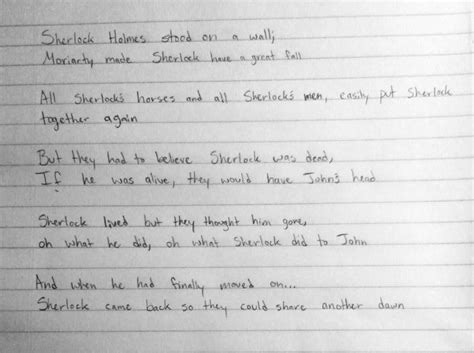 Sherlock Holmes stood on a wall;
Moriarty made Sherlock have a great fall
All Sherlock's horses and all Sherlock's men, easily put Sherlock
together again
But they had to believe Sherlock was dead,
If he was alive, they would have John's head
Sherlock lived but they thought him gone,
oh what he did, oh what Sherlock did to John
And when he had finally moved on...
Sherlock came back so they could share another dawn